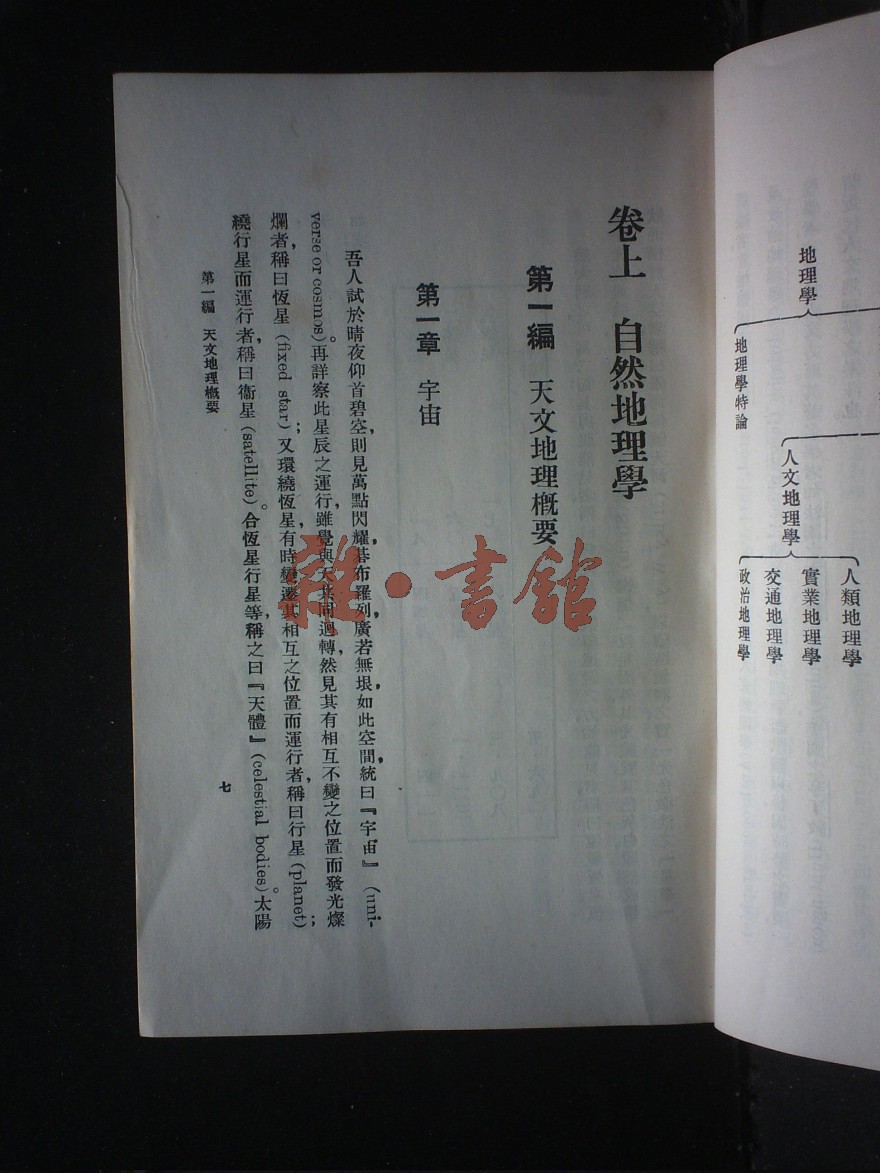 地理學
地理學特論
人文地理學
人類地理學
實業地理學
交通地理學
政治地理學
卷上　自然地理學
第一編　天文地理概要
第一章　宇宙
吾人試於晴夜仰首碧空，則見萬點閃耀，碁布羅列，廣若無垠，如此空間，統曰『宇宙』(uni-
verse or cosmos)。再詳察此星辰之運行，雖覺與天共同迴轉，然見其有相互不變之位置而發光燦
爛者，稱曰恆星(fixed star)；又環繞恆星有時變遷其相互之位置而運行者，稱曰行星(planet)；
繞行星而運行者，稱曰衞星(satellite)。合恆星行星等，稱之曰『天體』(celestial bodies)。太陽
第一編　天文地理概要
七
雜·書館